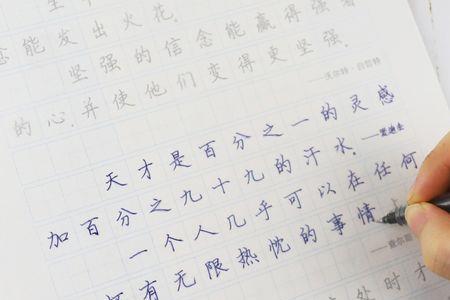 念能发出火花。
坚强的信念能赢得强者
的心，并使他们变得更坚强。
——沃尔特·白哲特
天才是百分之一的灵感
加百分之九十九的汗水。——爱迪生
一个人几乎可以在任何
有无限热忱的事情
处时才